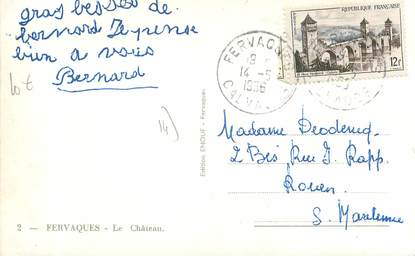 gros besses de
bernard Je pense
bien a vous
Bernard
lot
14)
RÉPUBLIQUE FRANÇAISE
12f
FERVAQUES
14-5
1956
CALVADOS
Edition ENOUF - Fervaques
Madame
2 Bis Rue J. Rapp.
Rouen
S. Maritime
2 — FERVAQUES - Le Château.